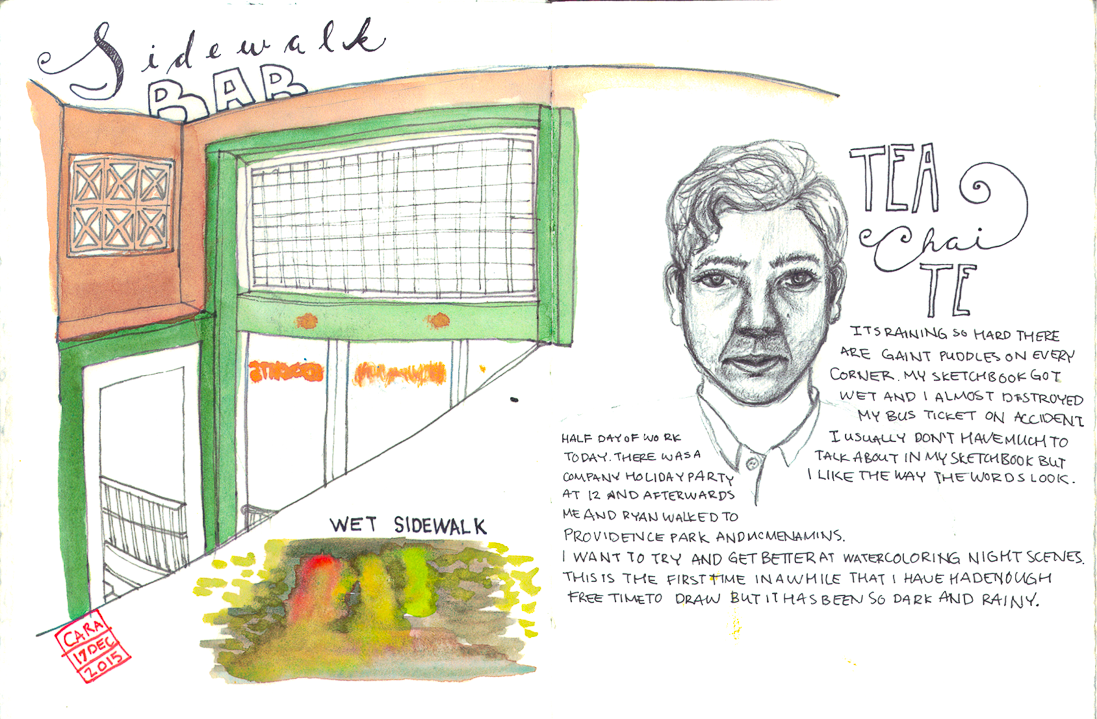 Sidewalk
BAR
TEA
Chai
TE
ITS RAINING SO HARD THERE
ARE GAINT PUDDLES ON EVERY
CORNER. MY SKETCHBOOK GOT
WET AND I ALMOST DESTROYED
MY BUS TICKET ON ACCIDENT
I USUALLY DON'T HAVE MUCH TO
TALK ABOUT IN MY SKETCHBOOK BUT
I LIKE THE WAY THE WORDS LOOK.
HALF DAY OF WORK
TODAY. THERE WAS A
COMPANY HOLIDAY PARTY
AT 12 AND AFTERWARDS
ME AND RYAN WALKED TO
PROVIDENCE PARK AND MCMENAMINS.
I WANT TO TRY AND GET BETTER AT WATERCOLORING NIGHT SCENES.
THIS IS THE FIRST TIME IN AWHILE THAT I HAVE HAD ENOUGH
FREE TIME TO DRAW BUT IT HAS BEEN SO DARK AND RAINY.
WET SIDEWALK
CARA
17 DEC
2015